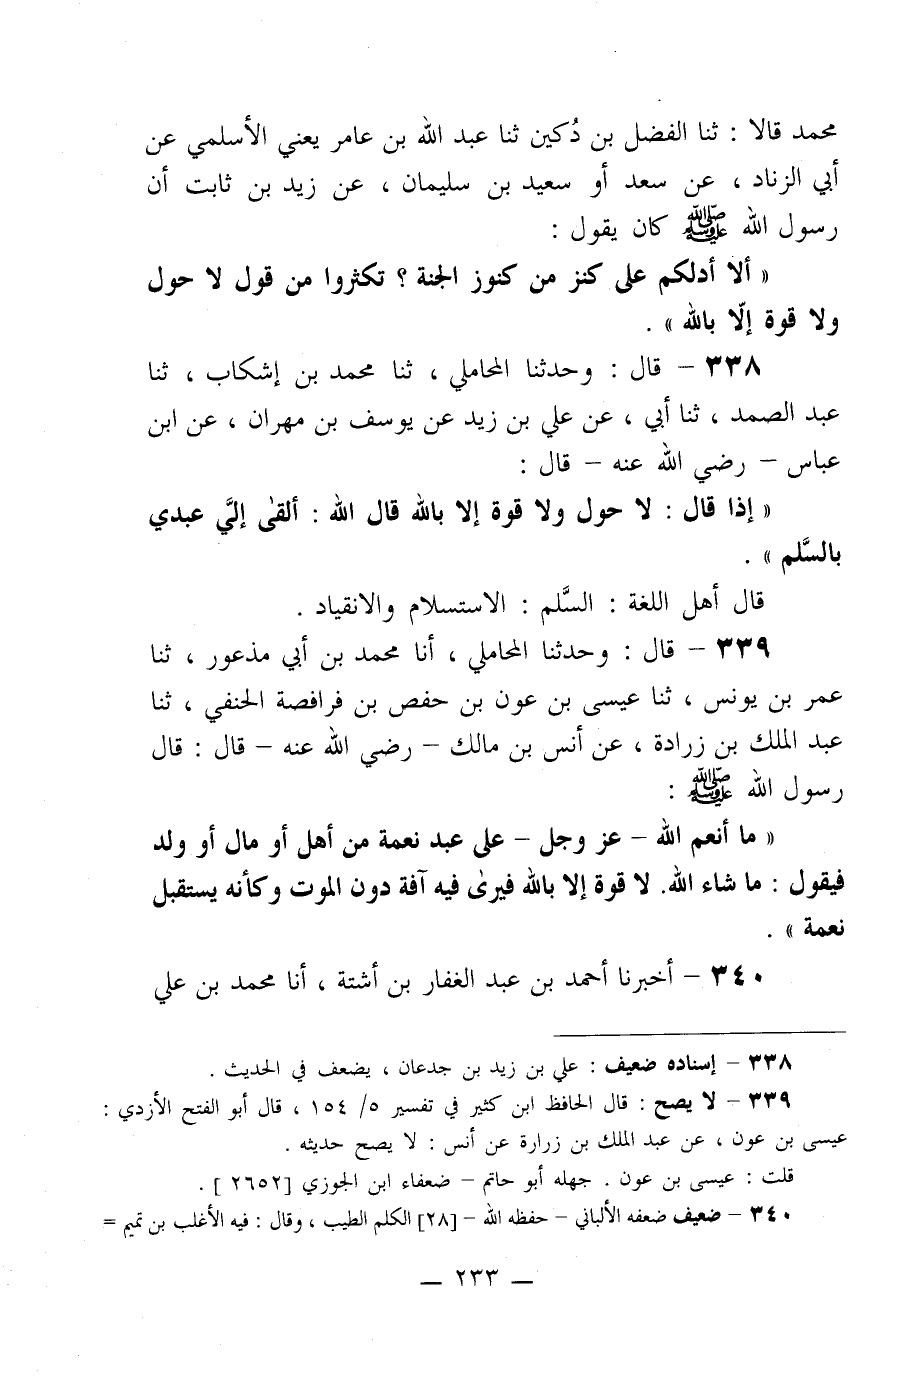 محمد قالا : ثنا الفضل بن دُكين ثنا عبد الله بن عامر يعني الأسلمي عن
أبي الزناد ، عن سعد أو سعيد بن سليمان ، عن زيد بن ثابت أن
رسول الله ﷺ كان يقول :
« ألا أدلكم على كنز من كنوز الجنة ؟ تكثروا من قول لا حول
ولا قوة إلّا بالله » .
٣٣٨ – قال : وحدثنا المحاملي ، ثنا محمد بن إشكاب ، ثنا
عبد الصمد ، ثنا أبي ، عن علي بن زيد عن يوسف بن مهران ، عن ابن
عباس – رضي الله عنه – قال :
« إذا قال : لا حول ولا قوة إلا بالله قال الله : ألقىٰ إليَّ عبدي
بالسَّلم » .
قال أهل اللغة : السَّلم : الاستسلام والانقياد .
٣٣٩ – قال : وحدثنا المحاملي ، أنا محمد بن أبي مذعور ، ثنا
عمر بن يونس ، ثنا عيسى بن عون بن حفص بن فرافصة الحنفي ، ثنا
عبد الملك بن زرادة ، عن أنس بن مالك – رضي الله عنه – قال : قال
رسول الله ﷺ :
« ما أنعم الله – عز وجل – على عبد نعمة من أهل أو مال أو ولد
فيقول : ما شاء الله. لا قوة إلا بالله فيرىٰ فيه آفة دون الموت وكأنه يستقبل
نعمة » .
٣٤٠ – أخبرنا أحمد بن عبد الغفار بن أشتة ، أنا محمد بن علي
٣٣٨ – إسناده ضعيف : علي بن زيد بن جدعان ، يضعف في الحديث .
٣٣٩ – لا يصح : قال الحافظ ابن كثير في تفسير ٥/ ١٥٤ ، قال أبو الفتح الأزدي :
عيسى بن عون ، عن عبد الملك بن زرارة عن أنس : لا يصح حديثه .
قلت : عيسى بن عون . جهله أبو حاتم – ضعفاء ابن الجوزي [٢٦٥٢ ] .
٣٤٠ – ضعيف ضعفه الألباني – حفظه الله – [٢٨] الكلم الطيب ، وقال : فيه الأغلب بن تميم =
— ٢٣٣ —